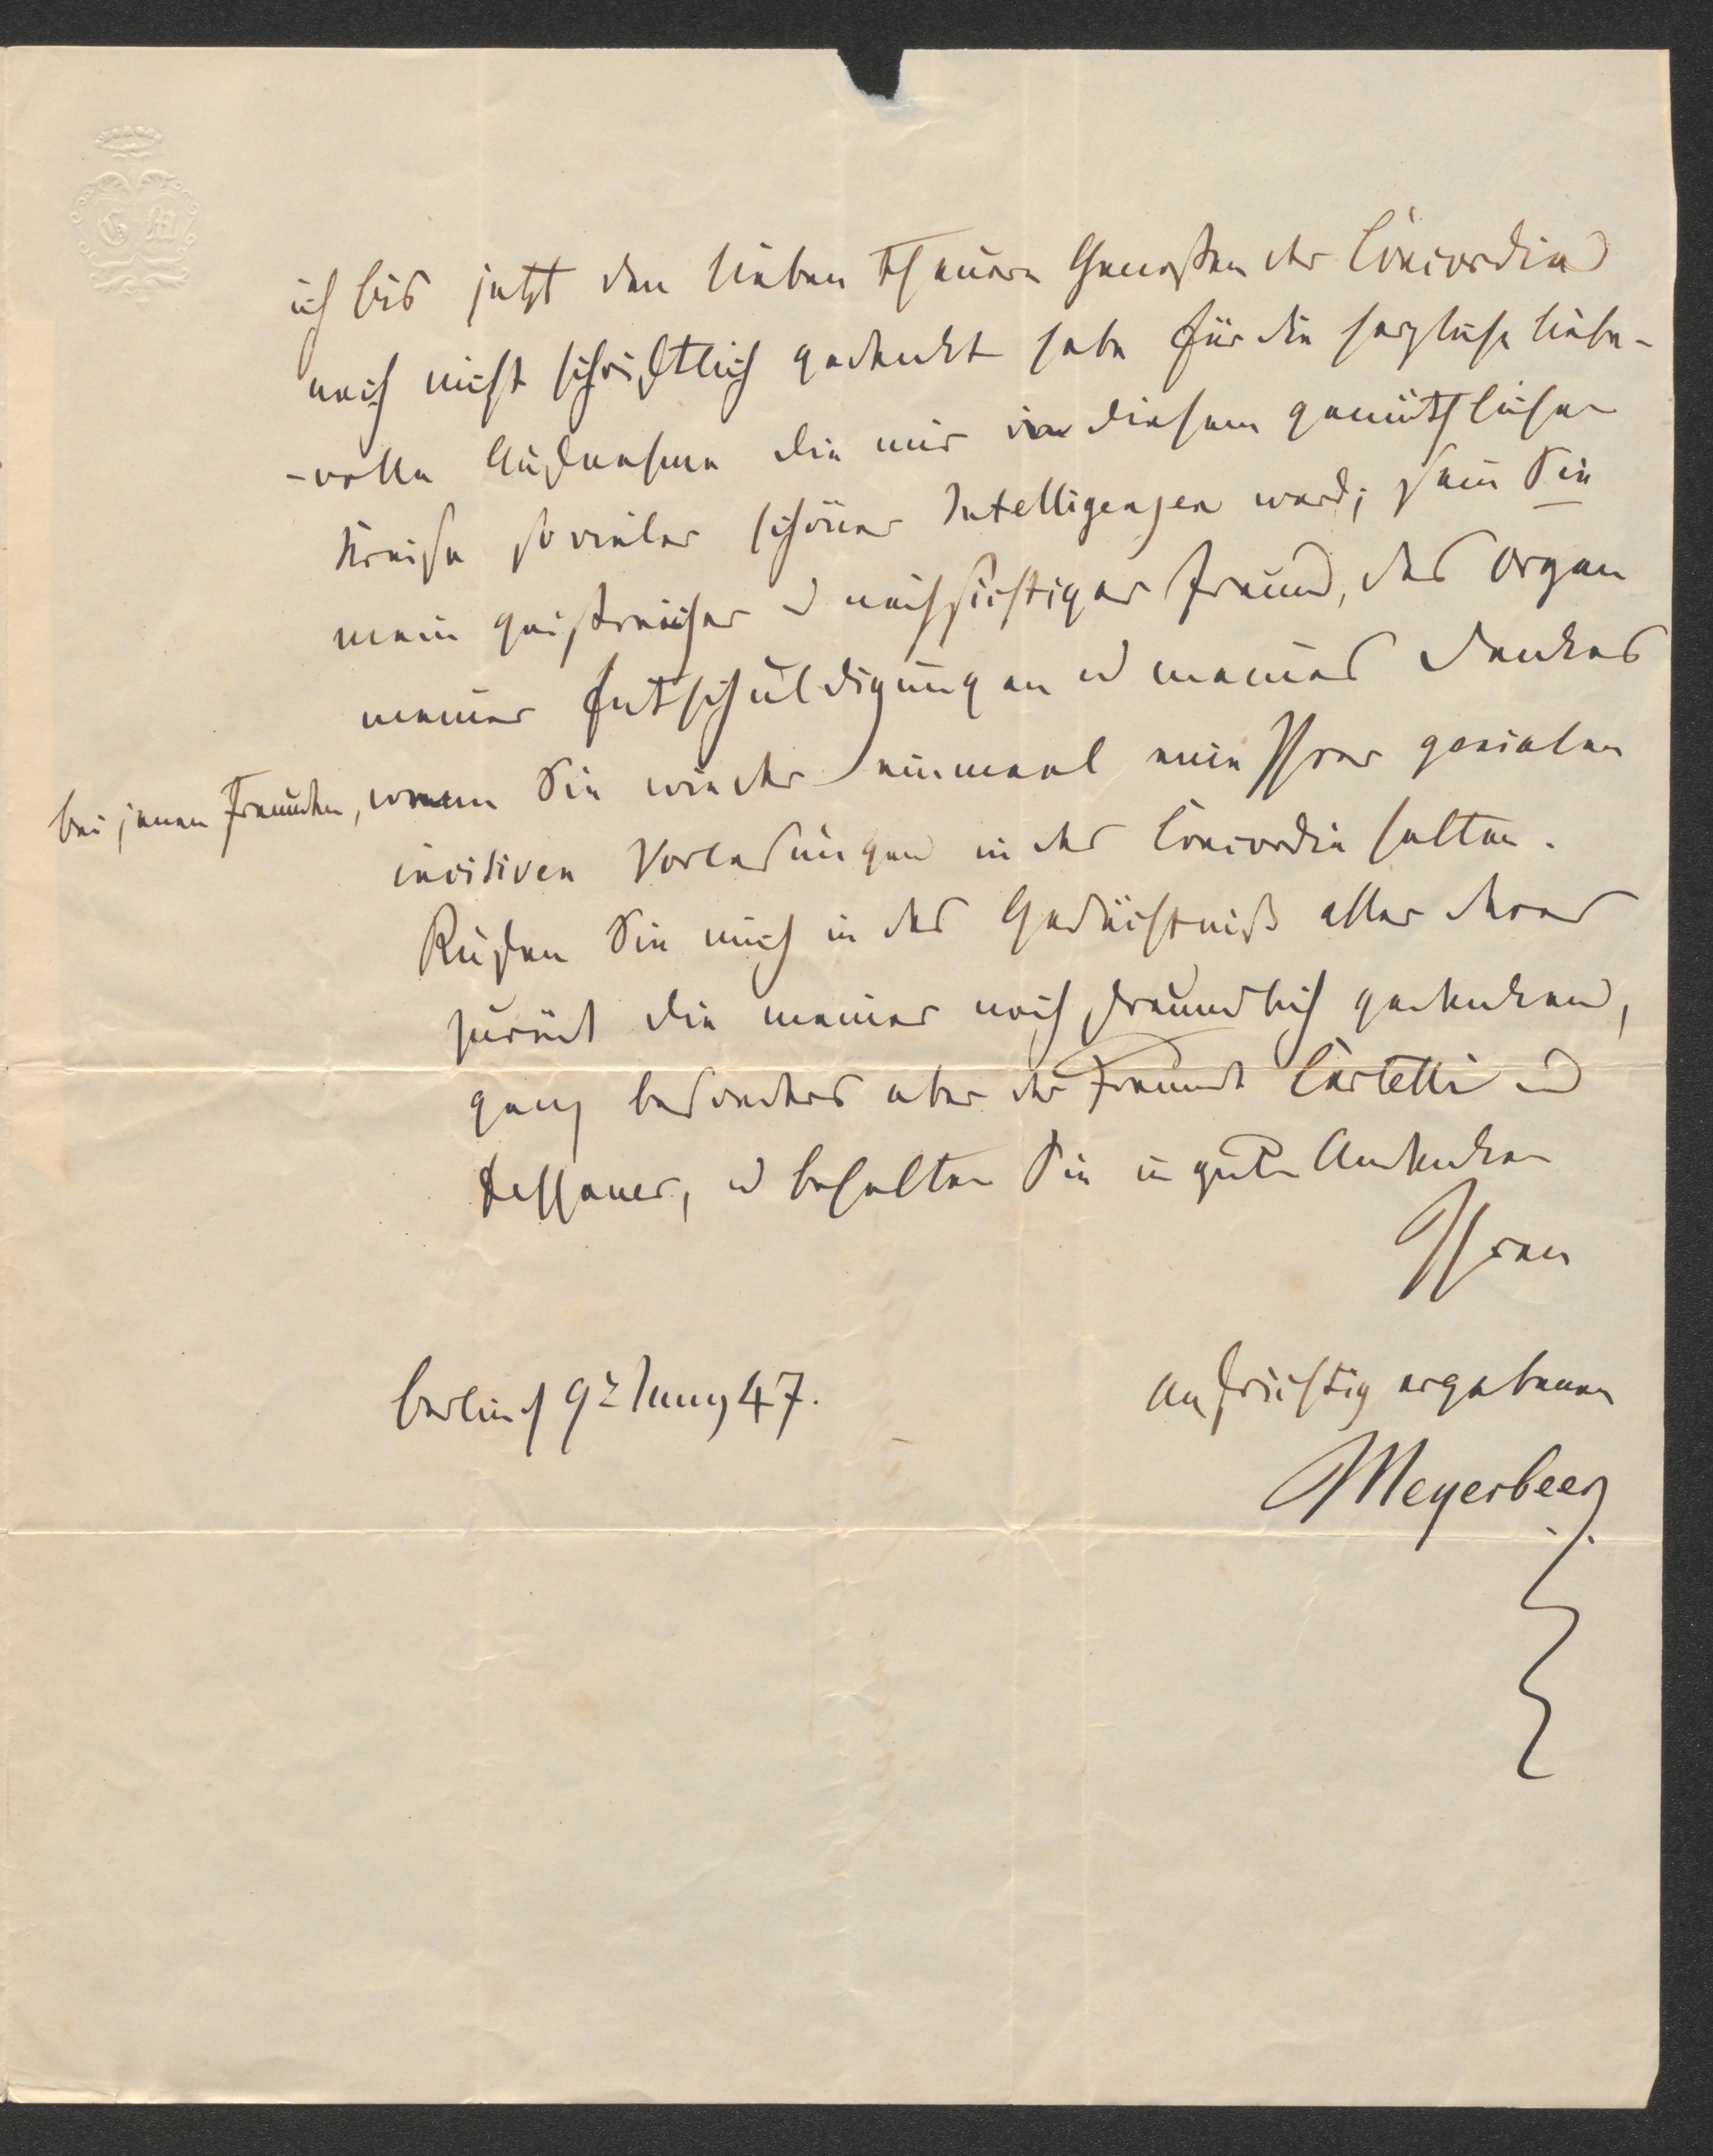 G M
ich bis jetzt den lieben theuern Genoßen der Concordia
noch nicht schriftlich gedankt habe für die herzliche liebe-
-volle Aufnahme die mir in diesem gemüthlichen
Kreise so vieler schöner Intelligenzen ward; sein Sie
mein geistreicher u nachsichtiger Freund, das Organ
meiner Entschuldigungen u meines Dankes
bei jenen Freunden, wenn Sie wieder einmal eine Ihrer genialen
incisiven Vorlesungen in der Concordia halten.
Rufen Sie mich in das Gedächtniß aller derer
zurück die meiner noch freundlich gedenken,
ganz besonders aber der Freunde Castelli u
Dessauer, u behalten Sie in gutem Andenken
Ihren
aufrichtig ergebenen
Berlin d 9t Juny 47.
Meyerbeer